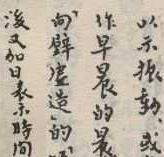 以示振動。或
作早晨的晨
向壁虛造的
後又加日表示時間